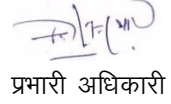 प्रभारी अधिकारी